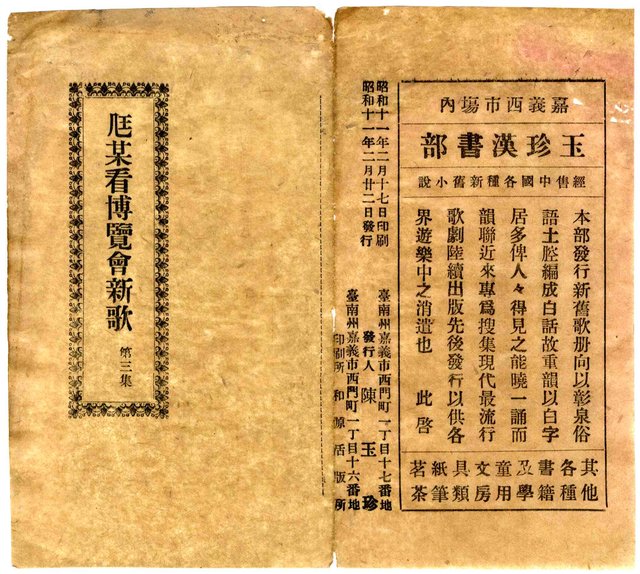 嘉義西市塲內
玉珍漢書部
經售中國各種新舊小說
本部發行新舊歌册向以彰泉俗
語土腔編成白話故重韻以白字
居多俾人々得見之能曉一誦而
韻聯近來專爲搜集現代最流行
歌劇陸續出版先後發行以供各
界遊樂中之消遣也 此啓
其他各種書籍及學童用文房具類紙筆茗茶
昭和十一年二月十七日印刷
昭和十一年二月廿二日發行
臺南州嘉義市西門町一丁目十七番地
發行人 陳玉珍
臺南州嘉義市西門町一丁目十六番地
印刷所 和原活版所
尪某看博覽會新歌 第三集